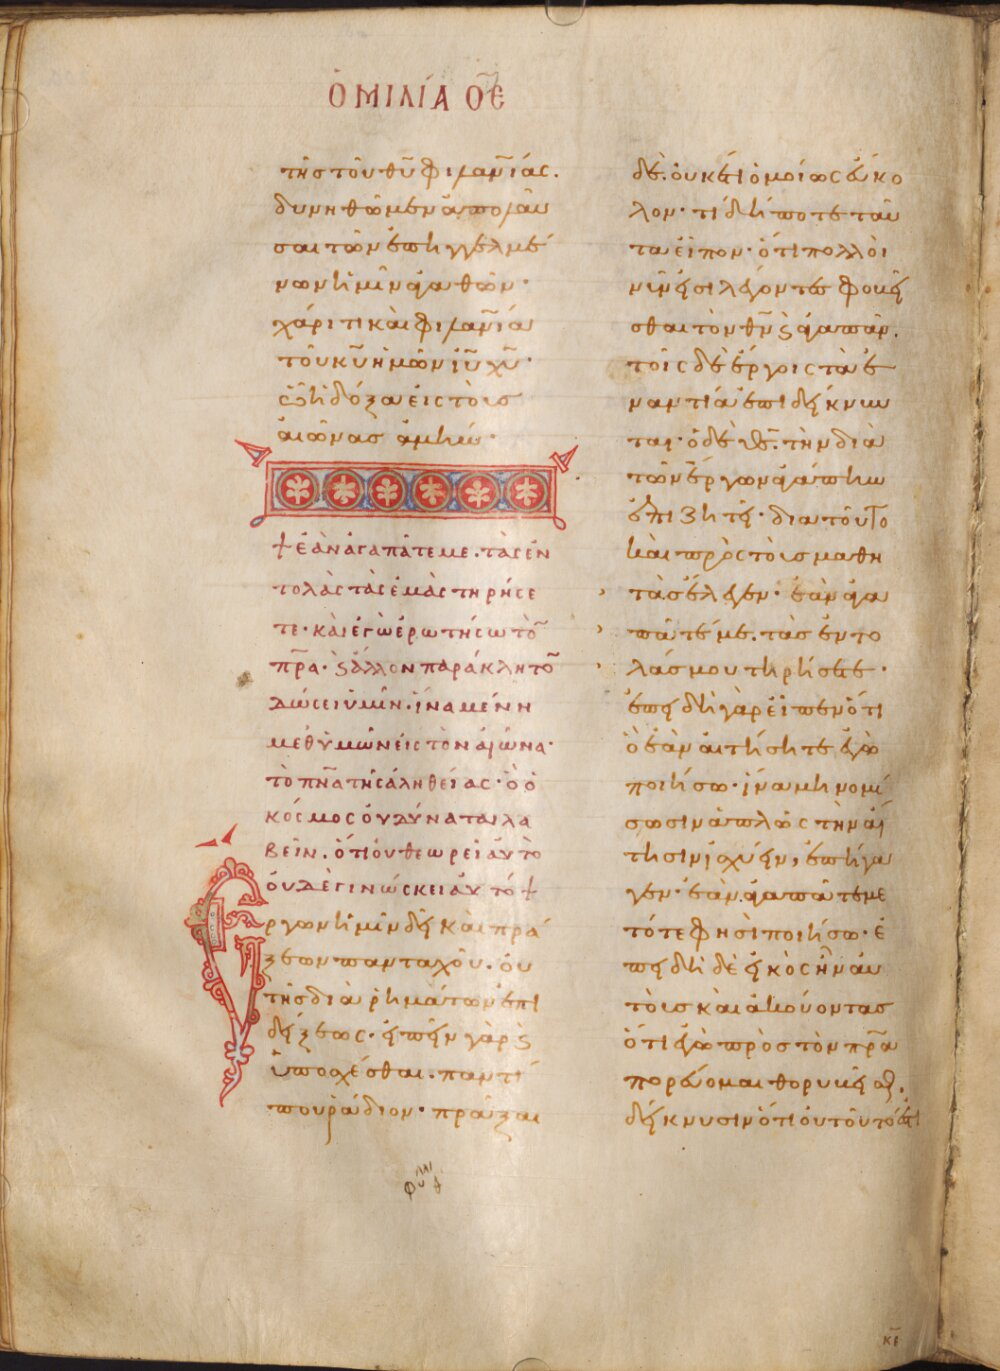 ὉΜΙΛΊΑ ΟΕ
τῆς τοῦ θῦ φιλανίας.
δυνηθῶμεν ἀπολαῦ
σαι τῶν ἐπηγγελμέ
νων ἡμῖν ἀγαθῶν·
χάριτι καὶ φιλανία
τοῦ κῦ ἡμῶν ἰῦ χῦ·
ᾧ ἡ δόξα εἰς τοὺς
αἰῶνας ἀμήν·
+ ἐὰν ἀγαπᾶτέ με. τὰς ἐν
τολὰς τὰς ἐμὰς τηρήσε
τε· καὶ ἐγὼ ἐρωτήσω τὸ
πρα· ϗ ἄλλον παράκλητο
δώσει ὑμῖν. ἵνα μένη
μεθ' ὑμῶν εἰς τὸν αἰῶνα·
τὸ πνα τῆς ἀληθείας· ὃ ὁ
κόσμος οὐ δύναται λα
βεῖν. ὅτι οὐ θεωρεῖ αὐτὸ
οὐδὲ γινώσκει αὐτό +
Ἔργων ἡμῖν δεῖ καὶ πρά
ξεων πανταχοῦ. οὐ
τῆς διὰ ῥημάτων ἐπι
δείξεως· εἰπεῖν γὰρ ϗ
ὑποσχέσθαι. παντί
που ῥάδιον· πρᾶξαι
δὲ. οὐκέτι ὁμοίως εὔκο
λον· τί δήποτε ταῦ
τα εἶπον· ὅτι πολλοὶ
νῦν εἰσι λέγοντες φοβεῖ
σθαι τὸν θν ϗ ἀγαπᾶν.
τοῖς δὲ ἔργοις τὰ ἐ
ναντία ἐπιδείκνυν
ται· ὁ δὲ θς. τὴν διὰ
τῶν ἔργων ἀγάπην
ἐπιζητεῖ· διὰ τοῦτο
καὶ πρὸς τοὺς μαθη
τὰς ἔλεγεν· ἐὰν ἀγα
πᾶτέ με. τὰς ἐντο
λάς μου τηρήσετε·
ἐπειδὴ γὰρ εἶπεν ὅτι
ὃ ἐὰν αἰτήσητε ἐγὼ
ποιήσω· ἵνα μὴ νομί
σωσιν ἁπλῶς τὴν αἴ
τησιν ἰσχύειν, ἐπήγα
γεν· ἐὰν ἀγαπᾶτέ με
τότε φησὶ ποιήσω· ἐ
πειδὴ δὲ εἰκὸς ἦν αὐ
τοὺς καὶ ἀκούοντας
ὅτι ἐγὼ πρὸς τὸν πρα
πορεύομαι θορυβεῖσθ.
δείκνυσιν ὅτι οὐ τοῦτό ἐστι